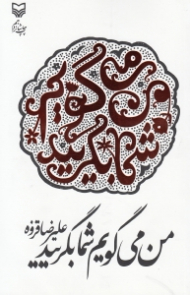 من می‌گویم
شما بگریید
علیرضا قزوه
من می گویم شما بگریید